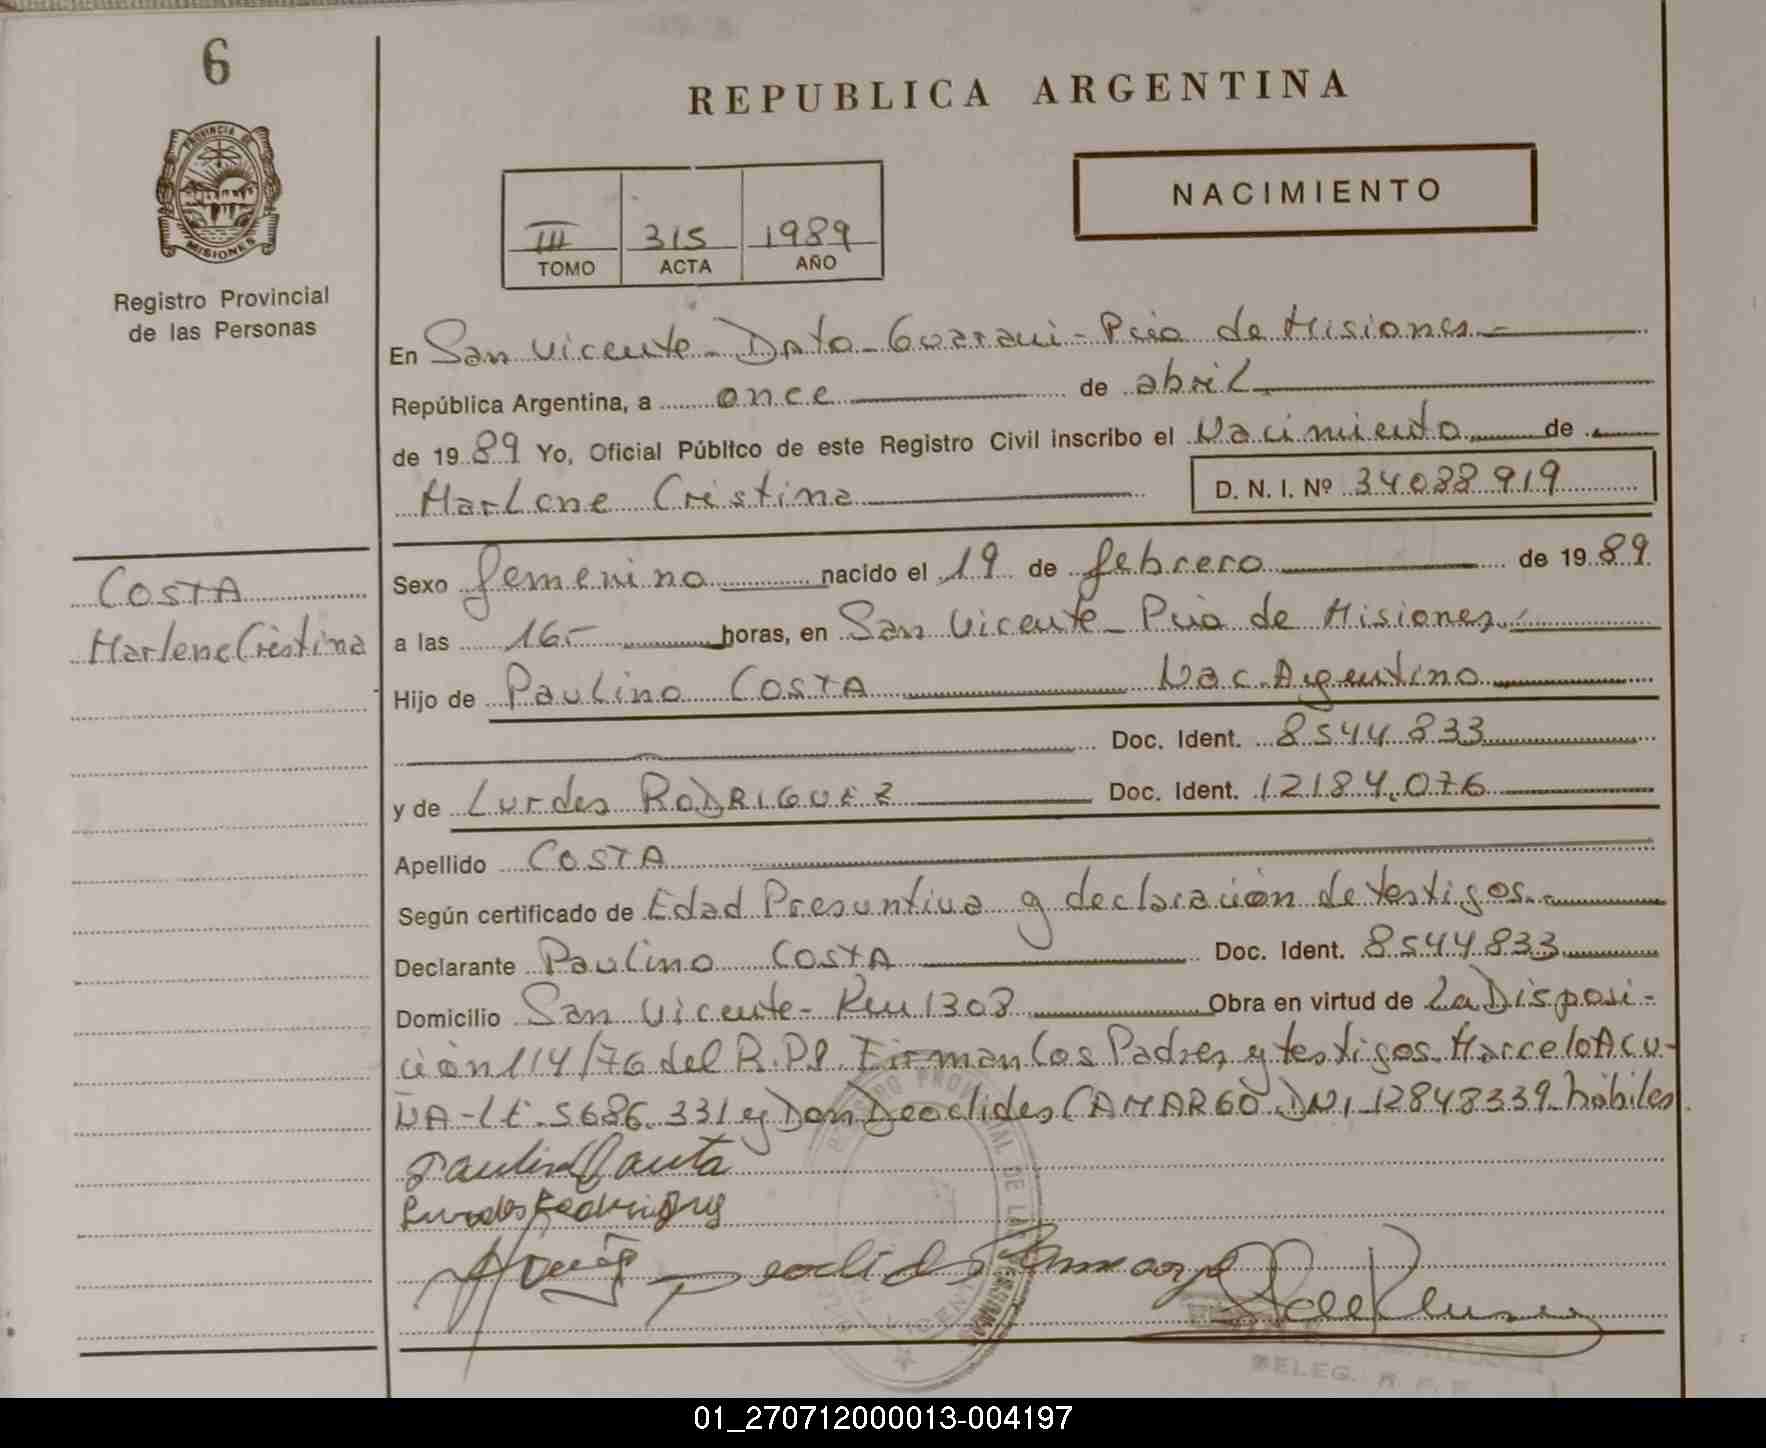 6
PROVINCIA DE
MISIONES
Registro Provincial
de las Personas
COSTA
Marlene Cristina
REPUBLICA ARGENTINA
NACIMIENTO
III 315 1989
TOMO ACTA AÑO
En San Vicente - Dpto - Guarani - Pcia de Misiones
República Argentina, a once de abril
de 1989 Yo, Oficial Público de este Registro Civil inscribo el Nacimiento de
Marlene Cristina D. N. I. Nº 34088919
Sexo femenino nacido el 19 de febrero de 1989
a las 16- horas, en San Vicente - Pcia de Misiones
Hijo de Paulino COSTA Nac. Argentino
Doc. Ident. 8544.833
y de Lurdes RODRIGUEZ Doc. Ident. 12184.076
Apellido COSTA
Según certificado de Edad Presuntiva y declaración de testigos.
Declarante Paulino COSTA Doc. Ident. 8544.833
Domicilio San Vicente - Obra en virtud de La Disposi-
ción 114/76 del R.P.P. Firman los Padres y testigos Marcelo ACU-
ÑA - LE. 5686.331 y Don Deoclides CAMARGO DNI 12848339 hábiles
Lurdes Rodrigues
Deoclides Camargo
REGISTRO PROVINCIAL DE LAS PERSONAS
DELEG. R. P. P.
01_270712000013-004197